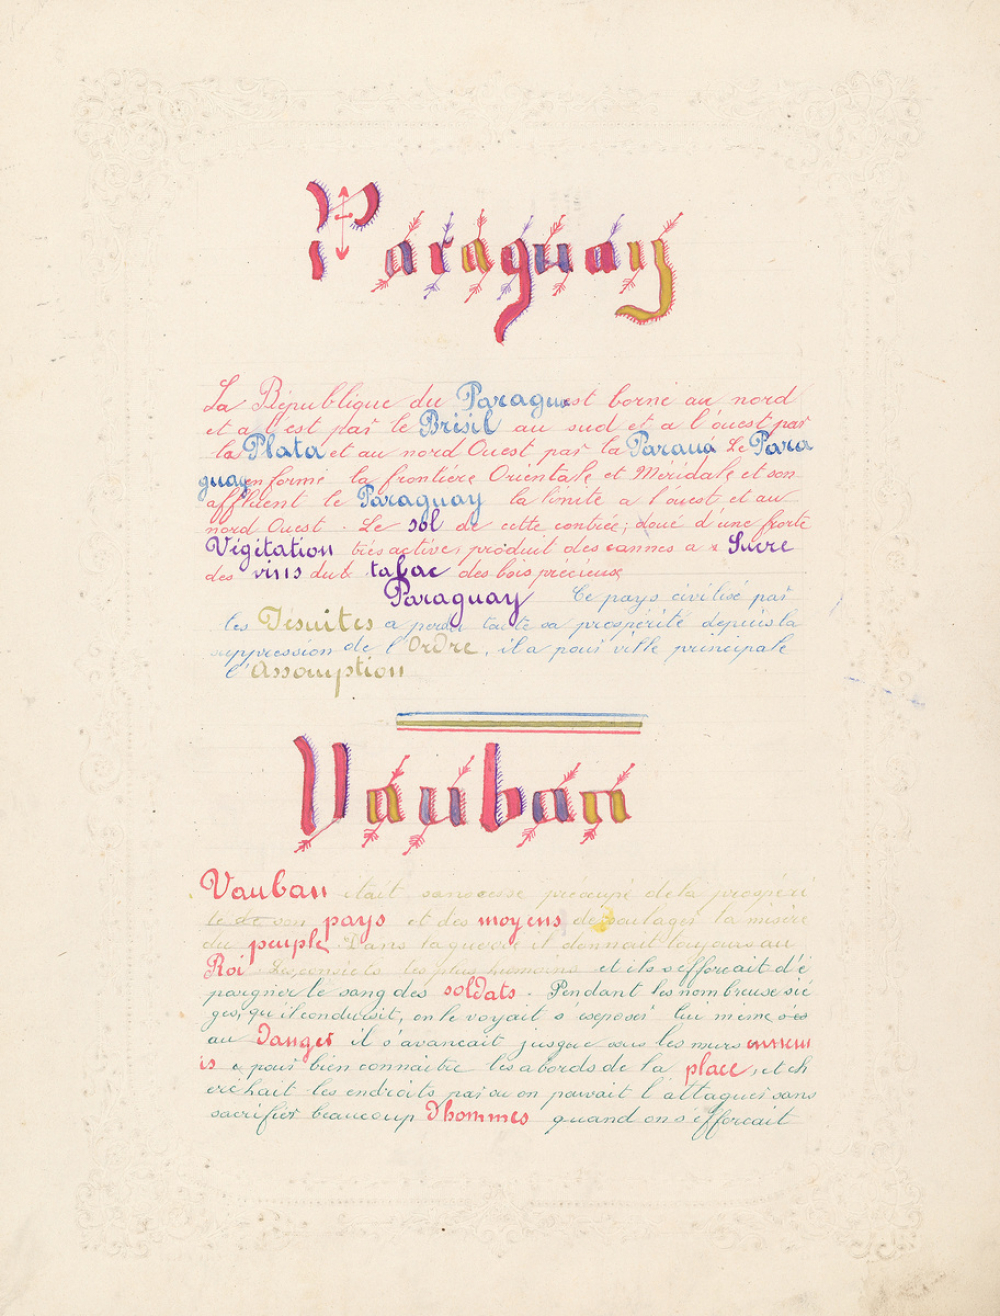 Paraguay
La République du Paraguest borne au nord
et a l'est par le Brésil au sud et a l'ouest par
la Plata et au nord Ouest par la Parauá Le Para
guayen forme la frontière Orientale et Méridale et son
affluent le Paraguay la limite a l'ouest et au
nord Ouest. Le sol de cette contrée; doué d'une forte
Végétation très active; produit des cannes a Sucre
des vins du tabac des bois précieux
Paraguay Ce pays civilisé par
les Jésuites a perdu toute sa prospérité depuis la
suppression de l'Ordre, il a pour ville principale
l'Assomption
Vauban
Vauban était sans cesse préocupé de la prospéri
té de son pays et des moyens de soulager la misère
du peuple. Dans la guerre il donnait toujours au
Roi Les conseils les plus humains et ils s'efforcait d'é
pargner le sang des soldats. Pendant les nombreuse siè
ges, qu'il conduisit, on le voyait s'exposer lui même
au Danger il s'avancait jusque sous les murs ennem
is pour bien connaitre les abords de la place, et ch
erchait les endroits par ou on pouvait l'attaquer sans
sacrifier beaucoup D'hommes quand on s'efforcait